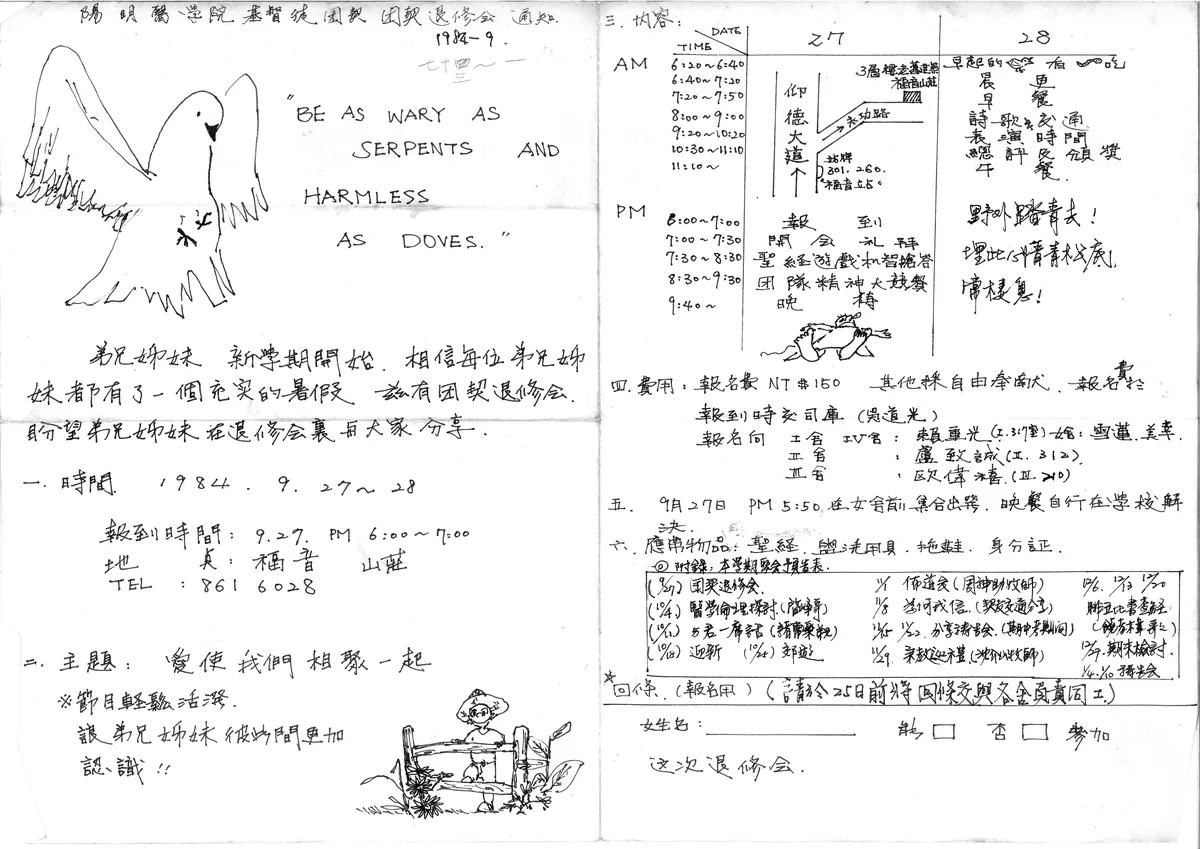 陽明醫學院 基督徒团契 团契退修会 通知
1984-9.
"BE AS WARY AS
SERPENTS AND
HARMLESS
AS DOVES."
弟兄姊妹 新学期開始. 相信每位弟兄姊
妹都有了一個充实的暑假 兹有团契退修会.
盼望弟兄姊妹在退修会裏与大家分享.
一. 時間 1984. 9. 27~28
報到時間: 9.27. PM 6:00~7:00
地 点: 福音 山莊
TEL : 861 6028
二. 主題: 愛使我們相聚一起
※節目輕鬆活潑.
讓弟兄姊妹彼此間更加
認識!!
三. 内容:
TIME DATE 27 28
AM
6:20~6:40 早起的 有 吃
6:40~7:20 晨 更
7:20~7:50 早 餐
8:00~9:00 詩歌交通
9:20~10:20 表演時間
10:30~11:10 總評及頒獎
11:10~ 午 餐.
仰德大道
永功路
福音山莊
站牌
301. 260.
"福音站"
PM
6:00~7:00 報 到
7:00~7:30 開会礼拜
7:30~8:30 聖經遊戲和智搶答
8:30~9:30 团隊精神大競餐
9:40~ 晚 禱
野外踏青去!
埋此心情青松底,
常棲息!
四. 費用: 報名費 NT$150 其他採自由奉献. 報名費於
報到時交司庫
報名向 I舍 IV舍: 賴重光(I.317室) 女舍: 雪蓮. 美幸.
II舍 : 盧致誠(II. 312)
III舍 : 欧偉禧.(III. 210)
五. 9月27日 PM 5:50 在女舍前集合出發. 晚餐自行在学校解
决.
六. 應帶物品: 聖経. 盥洗用具. 拖鞋. 身分証.
附錄: 本学期聚会預告表.
(9/27) 团契退修会.
(10/4) 醫学倫理探討
(10/11) 与君一席話
(10/18) 迎新 (10/25) 郊遊
11/1 佈道会(周神助牧師)
11/8 為何我信.
11/15 11/22. 分享禱告会.(期中考期間)
11/29.
12/6. 12/13 12/20
腓立比書查経
12/27. 期末檢討.
1/4. 1/10 禱告会
*回條.(報名用) (請於25日前將回條交與各舍負責同工)
姓名: 能 □ 否 □ 參加
这次退修会.